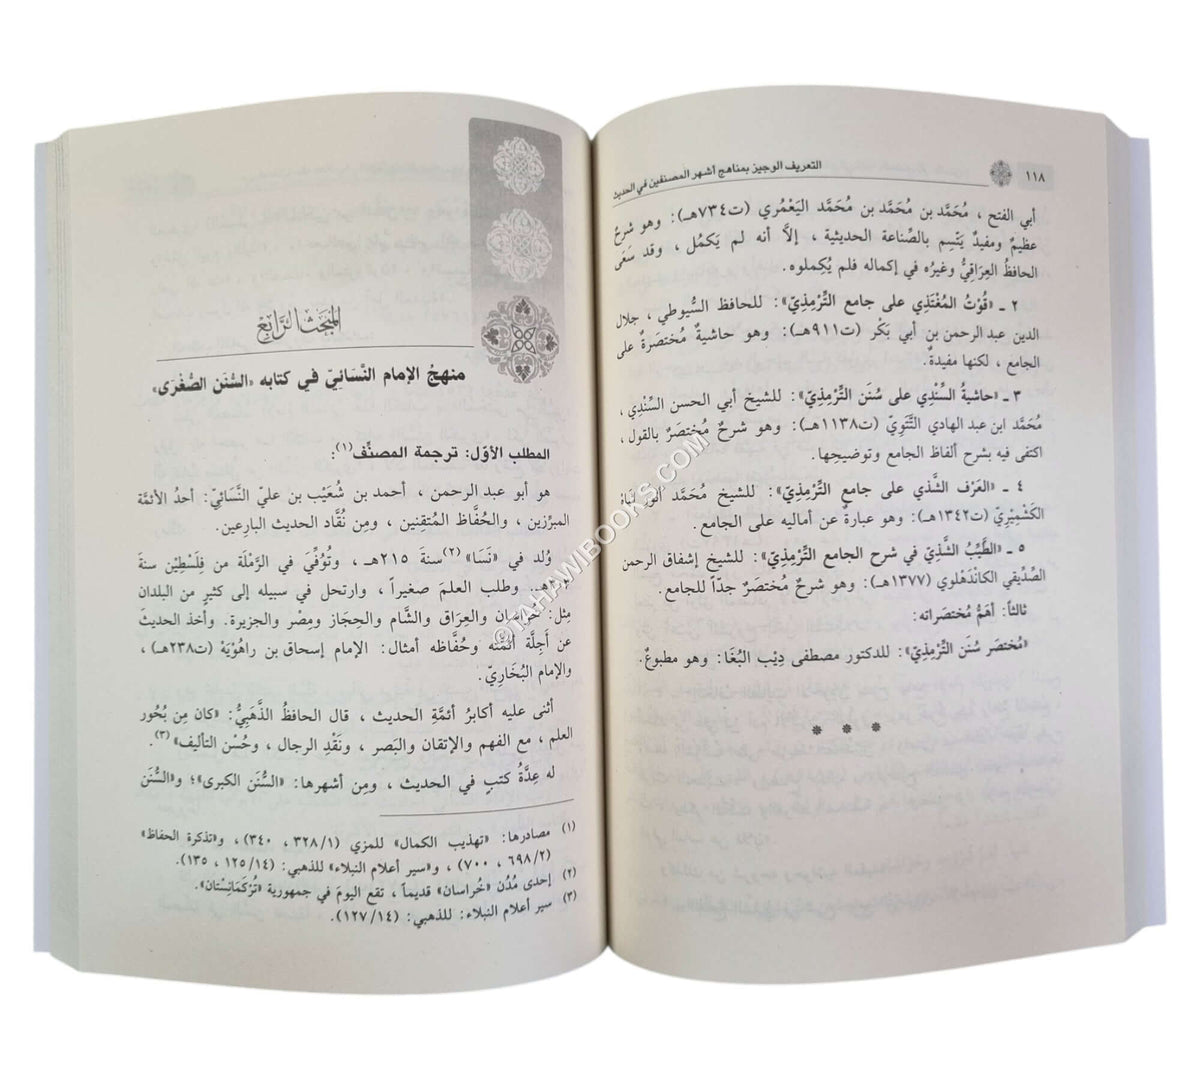 ١١٨
التعريف الوجيز بمناهج أشهر المصنفين في الحديث
أبي الفتح ، مُحَمَّد بن مُحَمَّد بن مُحَمَّد اليَعْمُري (ت٧٣٤هـ): وهو شرحٌ
عظيمٌ ومفيدٌ يَتَّسِم بالصِّناعة الحديثية ، إلاَّ أنه لم يَكمُل ، وقد سَعَى
الحافظُ العِرَاقيُّ وغيرُه في إكماله فلم يُكِملوه.
٢ ـ «قُوْتُ المُغْتَذِي على جامع التِّرْمِذِيّ»: للحافظ السُّيوطي ، جلال
الدين عبد الرحمن بن أبي بَكْر (ت٩١١هـ): وهو حاشيةٌ مُختصَرةٌ على
الجامع ، لكنها مفيدةٌ.
٣ ـ «حاشيةُ السِّنْدِي على سُنَن التِّرْمِذِيّ»: للشيخ أبي الحسن السِّنْدِي ،
مُحَمَّد ابن عبد الهادي التَّتَوِيّ (ت١١٣٨هـ): وهو شرحٌ مُختصَرٌ بالقول ،
اكتفى فيه بشرح ألفاظ الجامع وتوضيحِها.
٤ ـ «العَرْف الشَّذي على جامع التِّرْمِذِيّ»: للشيخ مُحَمَّد أنور شاه
الكَشْمِيْرِيّ (ت١٣٤٢هـ): وهو عبارةٌ عن أماليه على الجامع.
٥ ـ «الطِّيْبُ الشَّذِيّ في شرح الجامع التِّرْمِذِيّ»: للشيخ إشفاق الرحمن
الصِّدِّيقي الكانْدَهْلوي (ت١٣٧٧هـ): وهو شرحٌ مُختصَرٌ جدّاً للجامع.
ثالثاً: أهمُّ مُختصَراته:
«مُختصَر سُنَن التِّرْمِذِيّ»: للدكتور مصطفى دِيْب البُغَا: وهو مطبوعٌ.
* * *
المَبْحَثُ الرَّابِعُ
منهجُ الإمام النَّسَائيّ في كتابه «السُّنَن الصُّغْرَى»
المطلب الأوّل: ترجمة المصنِّف(١):
هو أبو عبد الرحمن ، أحمد بن شُعَيْب بن عليّ النَّسَائيّ: أحدُ الأئمَّة
المبرِّزين ، والحُفَّاظ المُتقِنين ، ومِن نُقَّاد الحديث البارِعين.
وُلد في «نَسَا»(٢) سنة ٢١٥هـ ، وتُوُفِّيَ في الرَّمْلَة من فِلَسْطِيْن سنة
وطلب العلمَ صغيراً ، وارتحل في سبيله إلى كثيرٍ من البلدان
مِثل: خُراسان والعِراق والشَّام والحِجاز ومِصْر والجزيرة. وأخذ الحديث
عن أَجِلَّة أئمَّته وحُفَّاظه أمثال: الإمام إسحاق بن راهُوْيَهْ (ت٢٣٨هـ) ،
والإمام البُخَارِيّ.
أثنى عليه أكابرُ أئمَّةِ الحديث ، قال الحافظُ الذَّهَبِيُّ: «كان مِن بُحُور
العلم ، مع الفهم والإتقان والبَصر ، ونَقْدِ الرجال ، وحُسْن التأليف»(٣).
له عِدَّةُ كتبٍ في الحديث ، ومِن أشهرها: «السُّنَن الكبرى»؛ و«السُّنَن
(١) مصادرها: «تهذيب الكمال» للمزي (٣٢٨/١ ، ٣٤٠) ، و«تذكرة الحفاظ»
(٦٩٨/٢ ، ٧٠٠) ، و«سير أعلام النبلاء» للذهبي: (١٢٥/١٤ ، ١٣٥).
(٢) إحدى مُدُن «خُراسان» قديماً ، تقع اليومَ في جمهورية «تُرْكَمَانِسْتان».
(٣) سير أعلام النبلاء: للذهبي: (١٢٧/١٤).
©TAHAWIBOOKS.COM